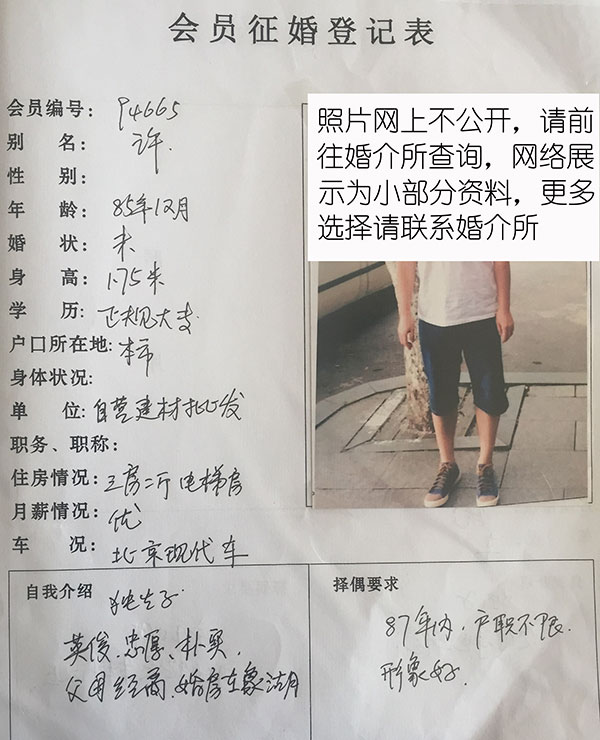 会员征婚登记表
会员编号: 94665
别 名: 许.
性 别:
年 龄: 85年12月
婚 状: 未
身 高: 1.75米
学 历: 正规大专
户口所在地: 本市
身体状况:
单 位: 自营建材批发
职务、职称:
住房情况: 三房二厅 电梯房
月薪情况: 优
车 况: 北京现代车
照片网上不公开，请前
往婚介所查询，网络展
示为小部分资料，更多
选择请联系婚介所
自我介绍 独生子
英俊、忠厚、朴实,
父母经商,婚房在象湖
择偶要求
87年内、户职不限.
形象好.